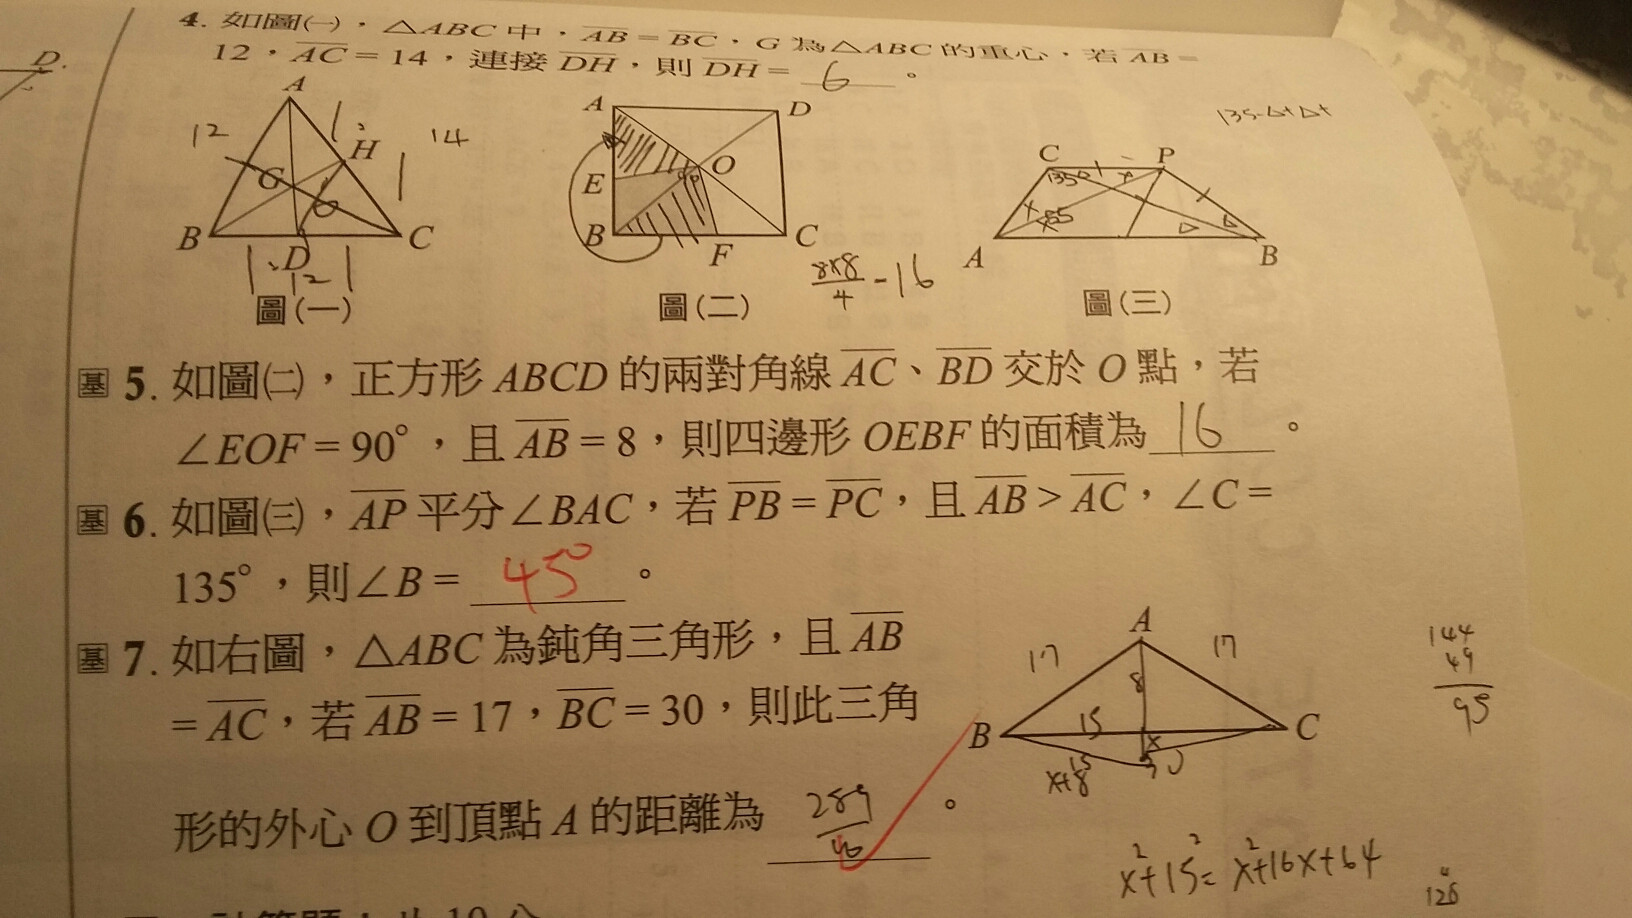 D.
4. 如圖㈠，△ABC 中，AB = BC，G 為△ABC 的重心，若 AB =
12，AC = 14，連接 DH，則 DH = 6 。
135-Δ+Δ+
A
12
14
H
G
B
D
C
12
圖(一)
A
D
E
O
B
F
C
8×8/4 = 16
圖(二)
C
P
135
A
B
圖(三)
基 5. 如圖㈡，正方形 ABCD 的兩對角線 AC、BD 交於 O 點，若
∠EOF = 90°，且 AB = 8，則四邊形 OEBF 的面積為 16 。
基 6. 如圖㈢，AP 平分∠BAC，若 PB = PC，且 AB > AC，∠C =
135°，則∠B = 45° 。
基 7. 如右圖，△ABC 為鈍角三角形，且 AB
= AC，若 AB = 17，BC = 30，則此三角
形的外心 O 到頂點 A 的距離為 289/16 。
A
17
17
8
B
15
C
x
x+8
30
144
49
95
x²+15²=x²+16x+64